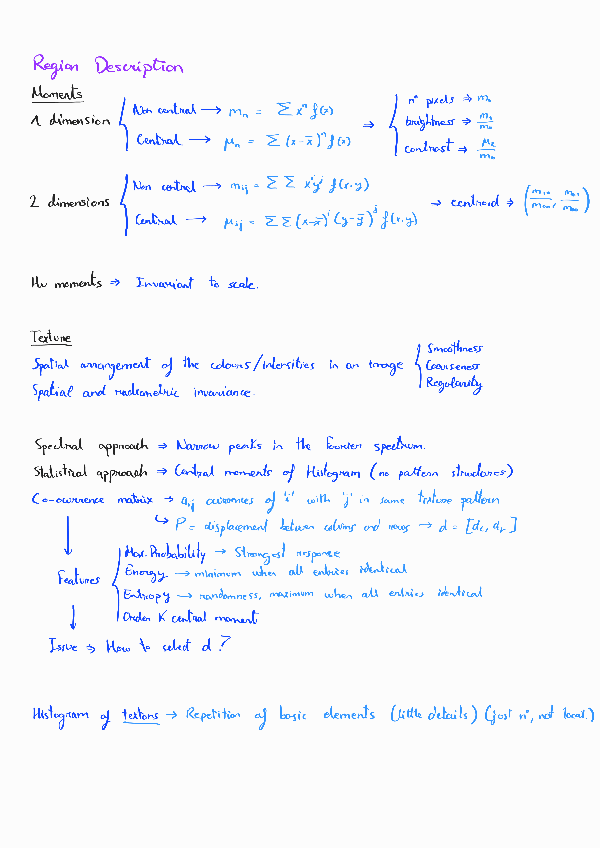 Region Description
Moments
1 dimension { Non central → mₙ = Σ xⁿ f(x)
Central → μₙ = Σ (x-x̄)ⁿ f(x)
⇒ { nº pixels ⇒ m₀
brightness ⇒ m₁/m₀
contrast ⇒ μ₂/m₀
2 dimensions { Non central → mᵢⱼ = Σ Σ xⁱyʲ f(x,y)
Central → μᵢⱼ = Σ Σ (x-x̄)ⁱ (y-ȳ)ʲ f(x,y)
→ centroid → (m₁₀/m₀₀, m₀₁/m₀₀)
Hu moments ⇒ Invariant to scale.
Texture
Spatial arrangement of the colours/intersities in an image { Smoothness
Coarseness
Regularity
Spatial and radiometric invariance.
Spectral approach ⇒ Narrow peaks in the Fourier spectrum.
Statistical approach ⇒ Central moments of Histogram (no pattern structures)
Co-ocurrence matrix → aᵢⱼ ocurrences of 'i' with 'j' in same texture pattern
↳ P = displacement between columns and rows → d = [dc, dr]
Features { Max. Probability → Strongest response
Energy → minimum when all entries identical
Entropy → randomness, maximum when all entries identical
Order K central moment
Issue ⇒ How to select d?
Histogram of textons → Repetition of basic elements (little details) (just nº, not local.)